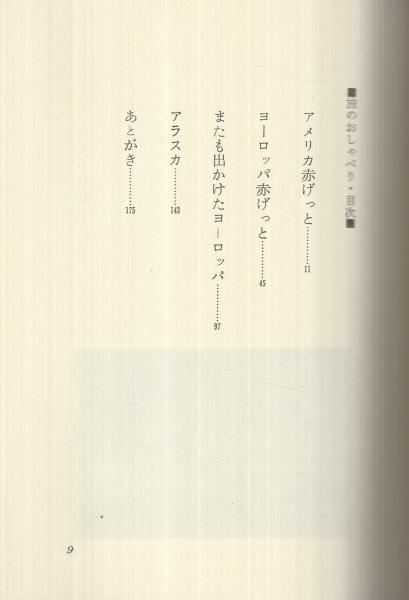 ■旅のおしゃべり・目次■
アメリカ赤げっと…………11
ヨーロッパ赤げっと…………45
またも出かけたヨーロッパ…………97
アラスカ…………143
あとがき…………175
9